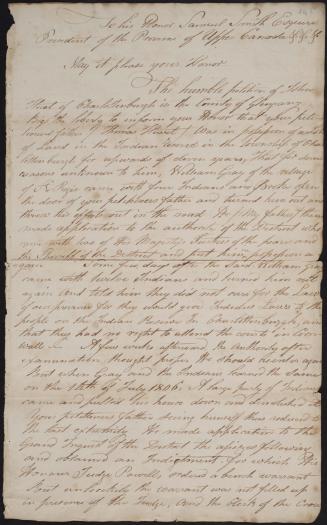 To his Honor Samuel Smith Esquire
President of the Province of Upper Canada &c &c
May it please your Honor
The humble petition of John
of Charlottenburgh in the County of Glengary
Begs the liberty to inform your Honor that your peti-
tioners father Thomas was in possession of a
of Land in the Indian in the Township of Char
lottenburgh for upwards of eleven years, that for some
reasons unknown to him, William Gray of the village
of St Regis came with four Indians and broke open
the door of your petitioners father and turned him out and
threw his effects out in the road He (My father) then
made application to the authority of the District who
came with two of his Majesty's Justices of the peace and
the Sheriff of the District and put him in possession
again Some few days after the said William Gray
came with Indians and turned him out
again and told them they did not care for the laws
of your province for they would over Indian laws to the
people on the Indian Reserve in Charlottenburgh, and
that they had no right to attend the courts in Corn
wall A few weeks afterward the Authority after
examination thought proper He should again
but when Gray and the Indians found the same
on the 18th of July 1806 A large party of Indians
came and pulled the house down and demolished it
Your petitioners father seeing himself thus reduced to
the last extremity He made application to the
Grand Inquest of the District the assizes following
and obtained an Indictment for which His
Honour Judge Powell, ordered a bench warrant
but unluckily the warrant was not filled up
in presence of the Judge, and the Clerk of the Crown